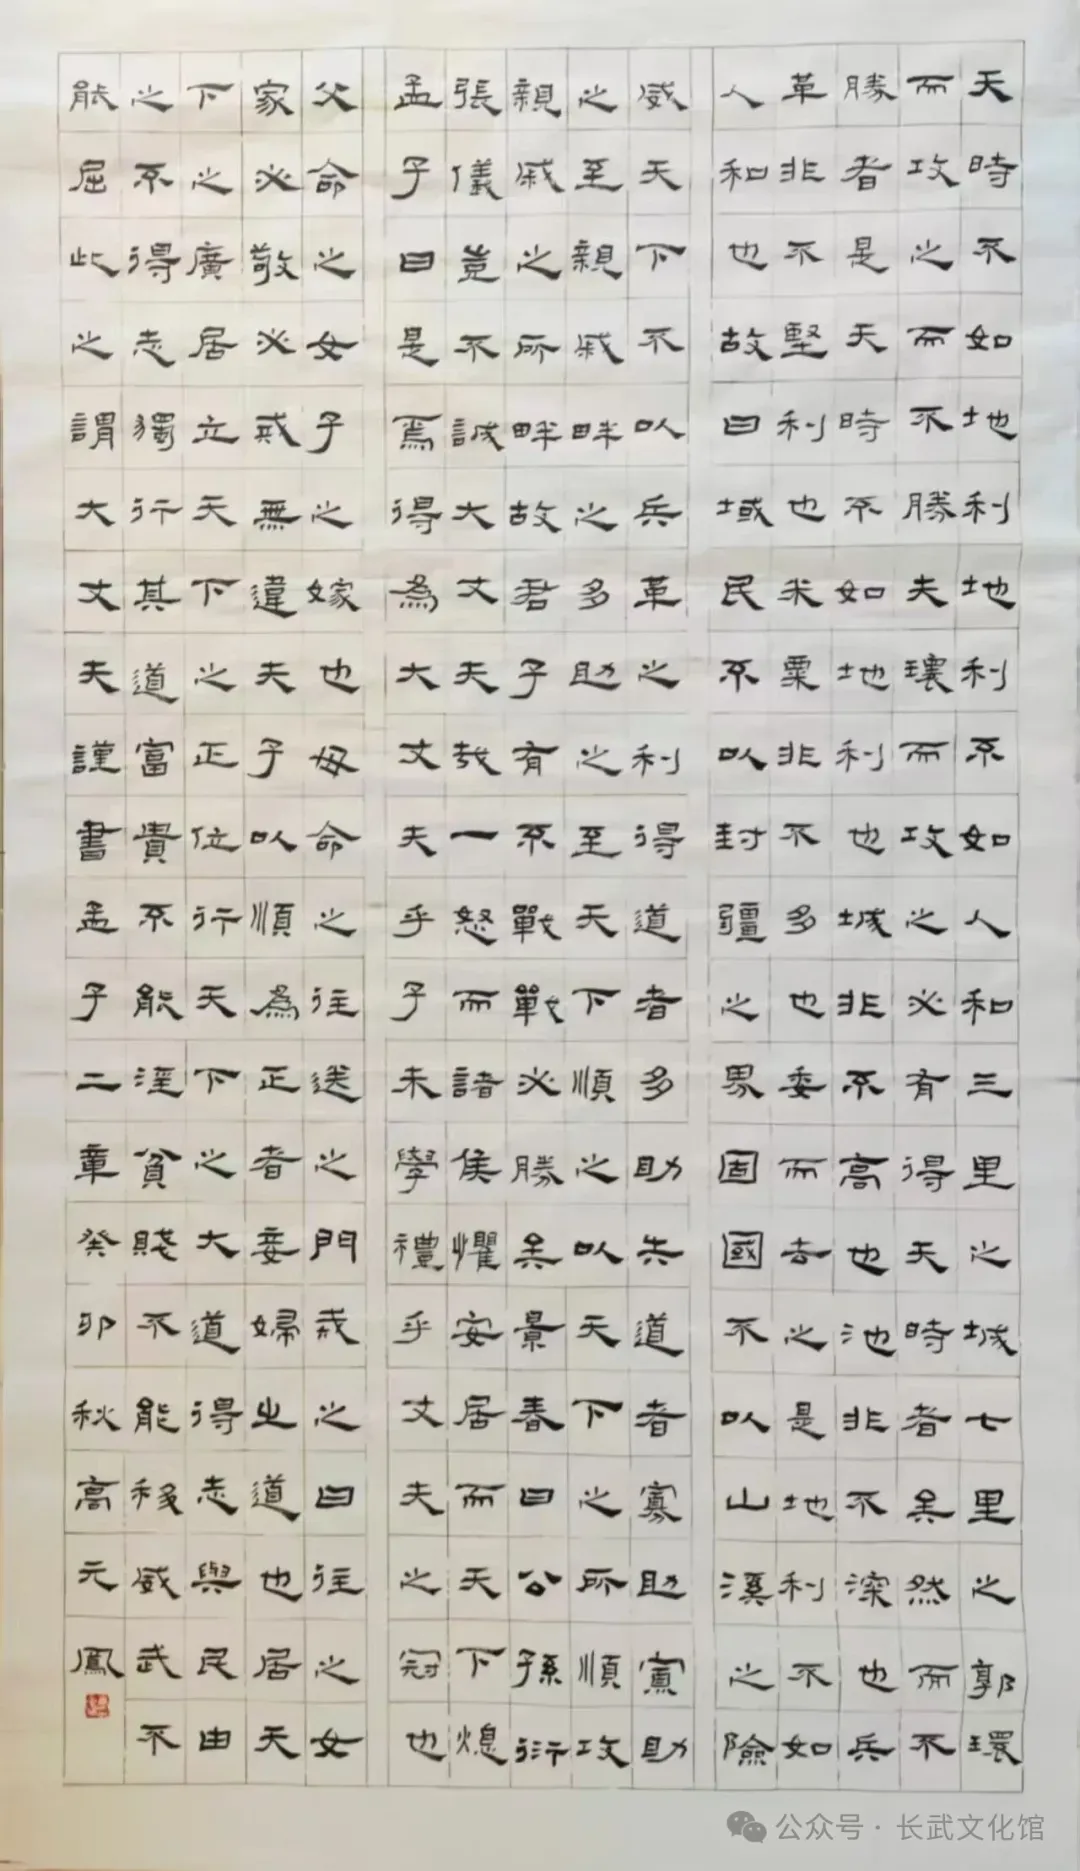 天時不如地利地利不如人和三里之城七里之郭環
而攻之而不勝夫環而攻之必有得天時者矣然而不
勝者是天時不如地利也城非不高也池非不深也兵
革非不堅利也米粟非不多也委而去之是地利不如
人和也故曰域民不以封疆之界固國不以山溪之險
威天下不以兵革之利得道者多助失道者寡助寡助
之至親戚畔之多助之至天下順之以天下之所順攻
親戚之所畔故君子有不戰戰必勝矣景春曰公孫衍
張儀豈不誠大丈夫哉一怒而諸侯懼安居而天下熄
孟子曰是焉得為大丈夫乎子未學禮乎丈夫之冠也
父命之女子之嫁也母命之往送之門戒之曰往之女
家必敬必戒無違夫子以順為正者妾婦之道也居天
下之廣居立天下之正位行天下之大道得志與民由
之不得志獨行其道富貴不能淫貧賤不能移威武不
能屈此之謂大丈夫謹書孟子二章癸卯秋高元鳳
公众号 · 长武文化馆